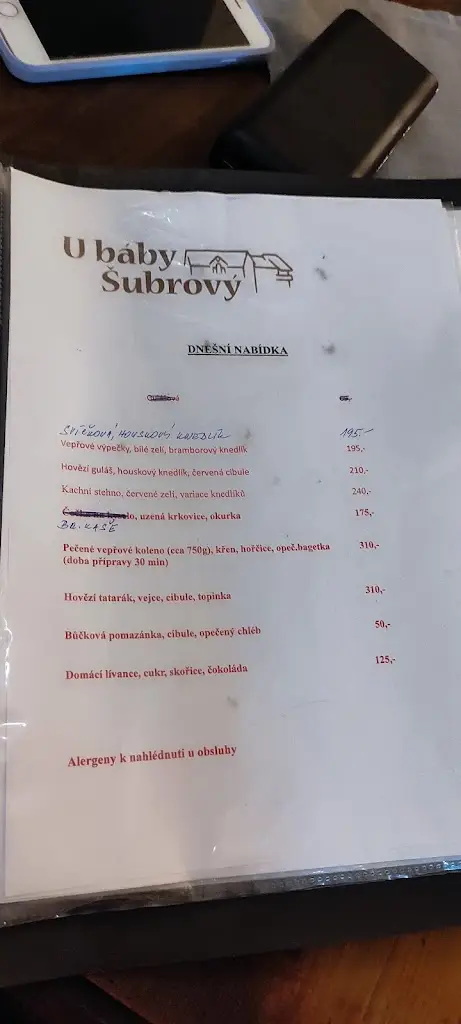 U báby
Šubrový
DNEŠNÍ NABÍDKA
SVÍČKOVÁ, HOUSKOVÝ KNEDLÍK 195.-
Vepřové výpečky, bílé zelí, bramborový knedlík 195,-
Hovězí guláš, houskový knedlík, červená cibule 210,-
Kachní stehno, červené zelí, variace knedlíků 240,-
uzená krkovice, okurka 175,-
BR. KAŠE
Pečené vepřové koleno (cca 750g), křen, hořčice, opeč.bagetka 310,-
(doba přípravy 30 min)
Hovězí tatarák, vejce, cibule, topinka 310,-
Bůčková pomazánka, cibule, opečený chléb 50,-
Domácí lívance, cukr, skořice, čokoláda 125,-
Alergeny k nahlédnutí u obsluhy